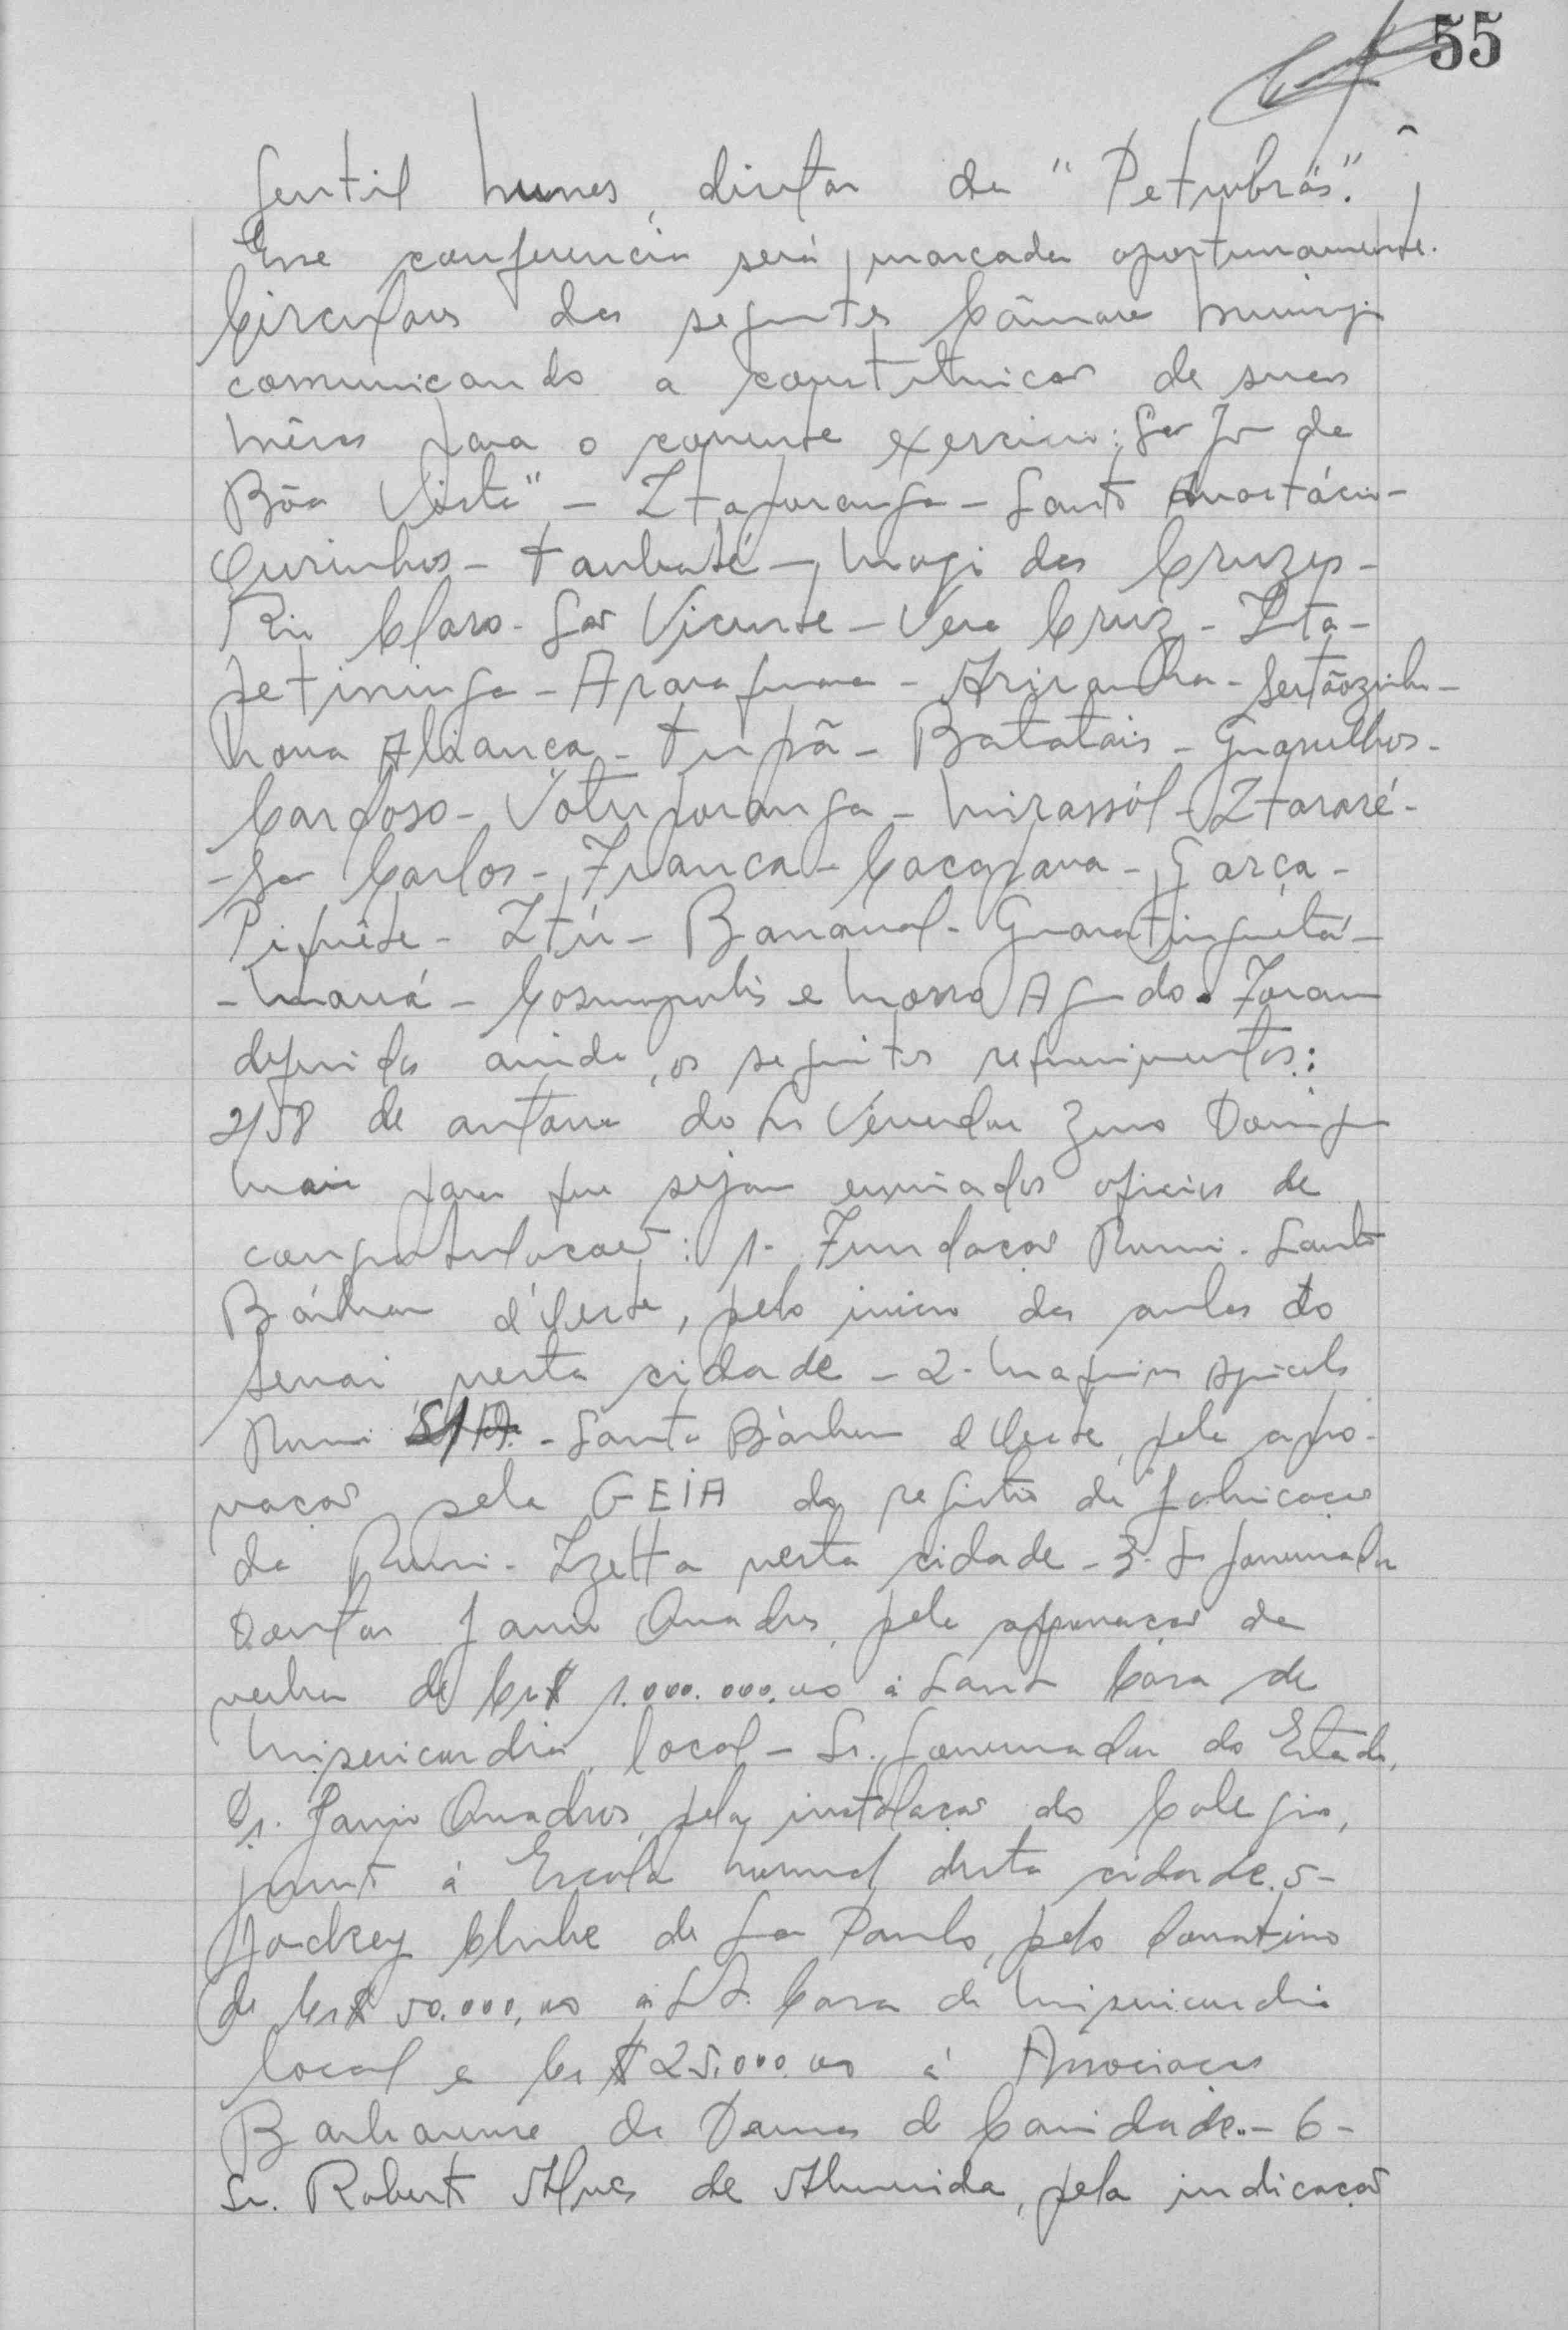 55
Gentil Nunes, diretor da "Petrobrás".
Esse conferencia será marcada oportunamente.
Circulares das seguintes Câmara Municip
comunicando a constituicão de suas
Mêsas para o corrente exercicio: São João da
Bôa Vista" - Itaporanga - Santo Anastácio -
Ourinhos - Taubaté - Mogi das Cruzes -
Rio Claro - São Vicente - Vera Cruz - Ita-
petininga - Araraquara - Ariranha - Sertãozinho -
Nova Aliança - Tupã - Batatais - Guarulhos -
Cardoso - Votuporanga - Mirassól - Itararé -
- São Carlos - Franca - Caçapava - Garça -
Piquête - Itú - Bananal - Guaratinguetá -
- Mauá - Cosmopolis e Morro Agudo. Foram
deferidos ainda, os seguintes requerimentos:
2/58 de autoria do Sr Vereador Zeno Domingos
Maia para que sejam enviados oficios de
congratulacões: 1- Fundação Romi - Santa
Bárbara d'Oeste, pelo inicio das aulas do
Senai nesta cidade - 2- Maquinas Agricolas
Romi S/A. - Santa Bárbara d'Oeste, pela apro-
vação pela GEIA do registro de fabricação
da Romi-Izetta nesta cidade - 3- Sr Governador
Doutor Janio Quadros, pela aprovação da
verba de Cr$ 1.000.000,00 à Santa Casa de
Misericordia local - Sr. Governador do Estado,
Dr. Janio Quadros, pela instalação do Colegio,
junto à Escola Normal desta cidade. 5-
Jockey Clube de São Paulo, pelo donativo
de Cr$ 50.000,00 à Sta. Casa de Misericordia
local e Cr$ 25.000,00 à Associação
Barbarense de Damas de Caridade. - 6 -
Sr. Roberto Alves de Almeida, pela indicação